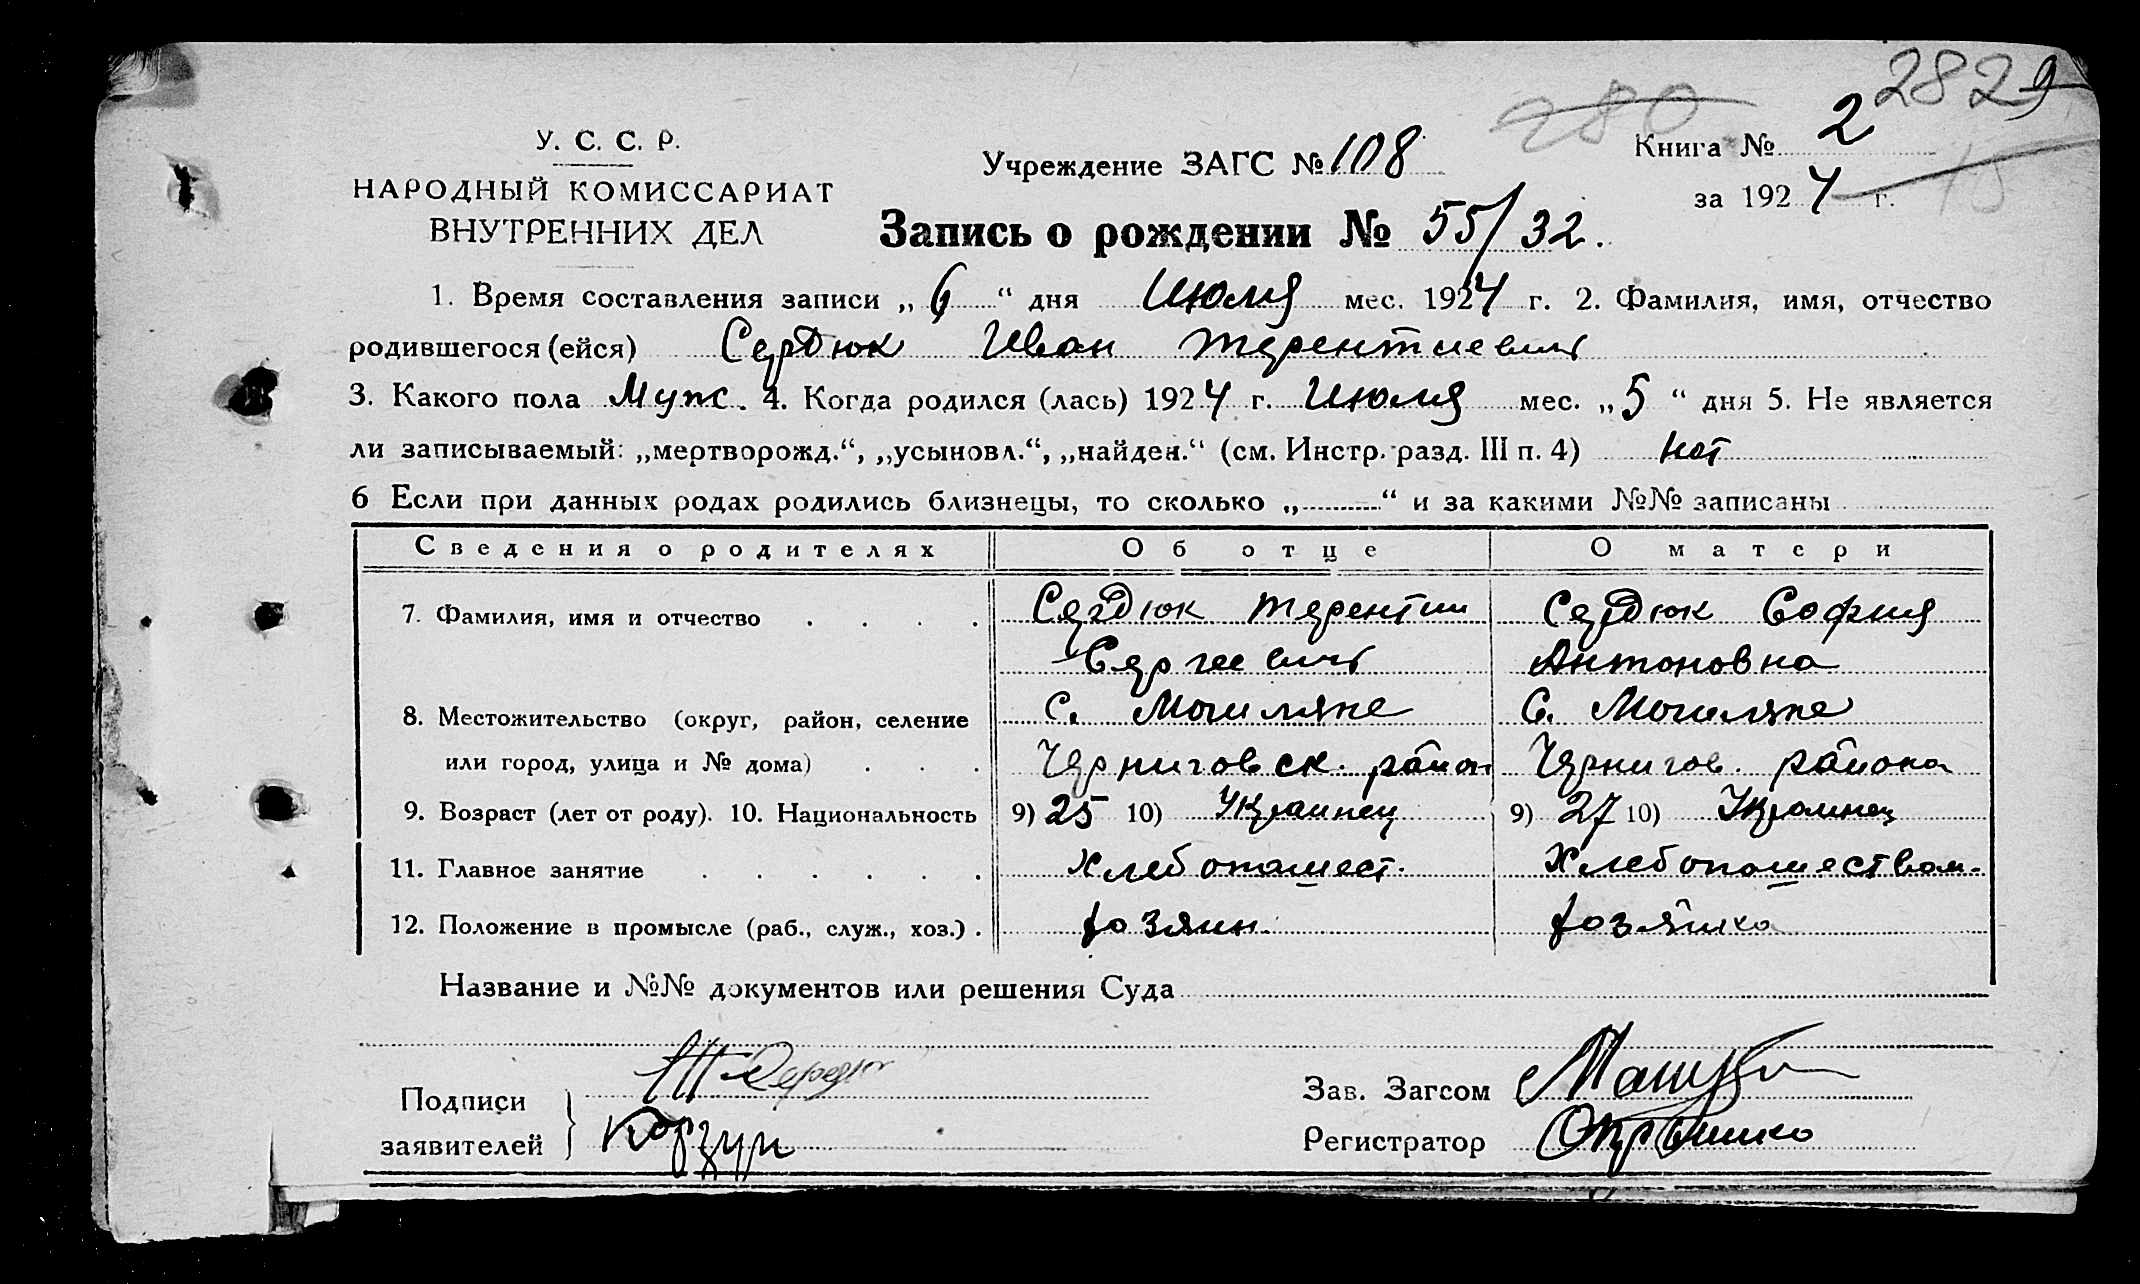 2829
280
У. С. С. Р.
НАРОДНЫЙ КОМИССАРИАТ
ВНУТРЕННИХ ДЕЛ
Учреждение ЗАГС № 108
Книга № 2
за 1924 г. 15
Запись о рождении № 55/32.
1. Время составления записи „ 6 “ дня Июля мес. 1924 г. 2. Фамилия, имя, отчество
родившегося (ейся) Сердюк Иван Терентиевич
3. Какого пола Муж. 4. Когда родился (лась) 1924 г. Июля мес. „ 5 “ дня 5. Не является
ли записываемый: „мертворожд.“, „усыновл.“, „найден.“ (см. Инстр. разд. III п. 4) нет
6 Если при данных родах родились близнецы, то сколько „..........“ и за какими №№ записаны
Сведения о родителях Об отце О матери
7. Фамилия, имя и отчество . . . . Сердюк Терентий Сердюк София
Сергеевич Антоновна
8. Местожительство (округ, район, селение С. Могиляне С. Могиляне
или город, улица и № дома) . . . Черниговск. район Чернигов. района
9. Возраст (лет от роду). 10. Национальность 9) 25 10) Украинец 9) 27 10) Украинец
11. Главное занятие . . . . . . Хлебопашест. Хлебопашеством.
12. Положение в промысле (раб., служ., хоз.) . хозяин. хозяйка
Название и №№ документов или решения Суда
Подписи
заявителей
Корзун
Зав. Загсом
Регистратор